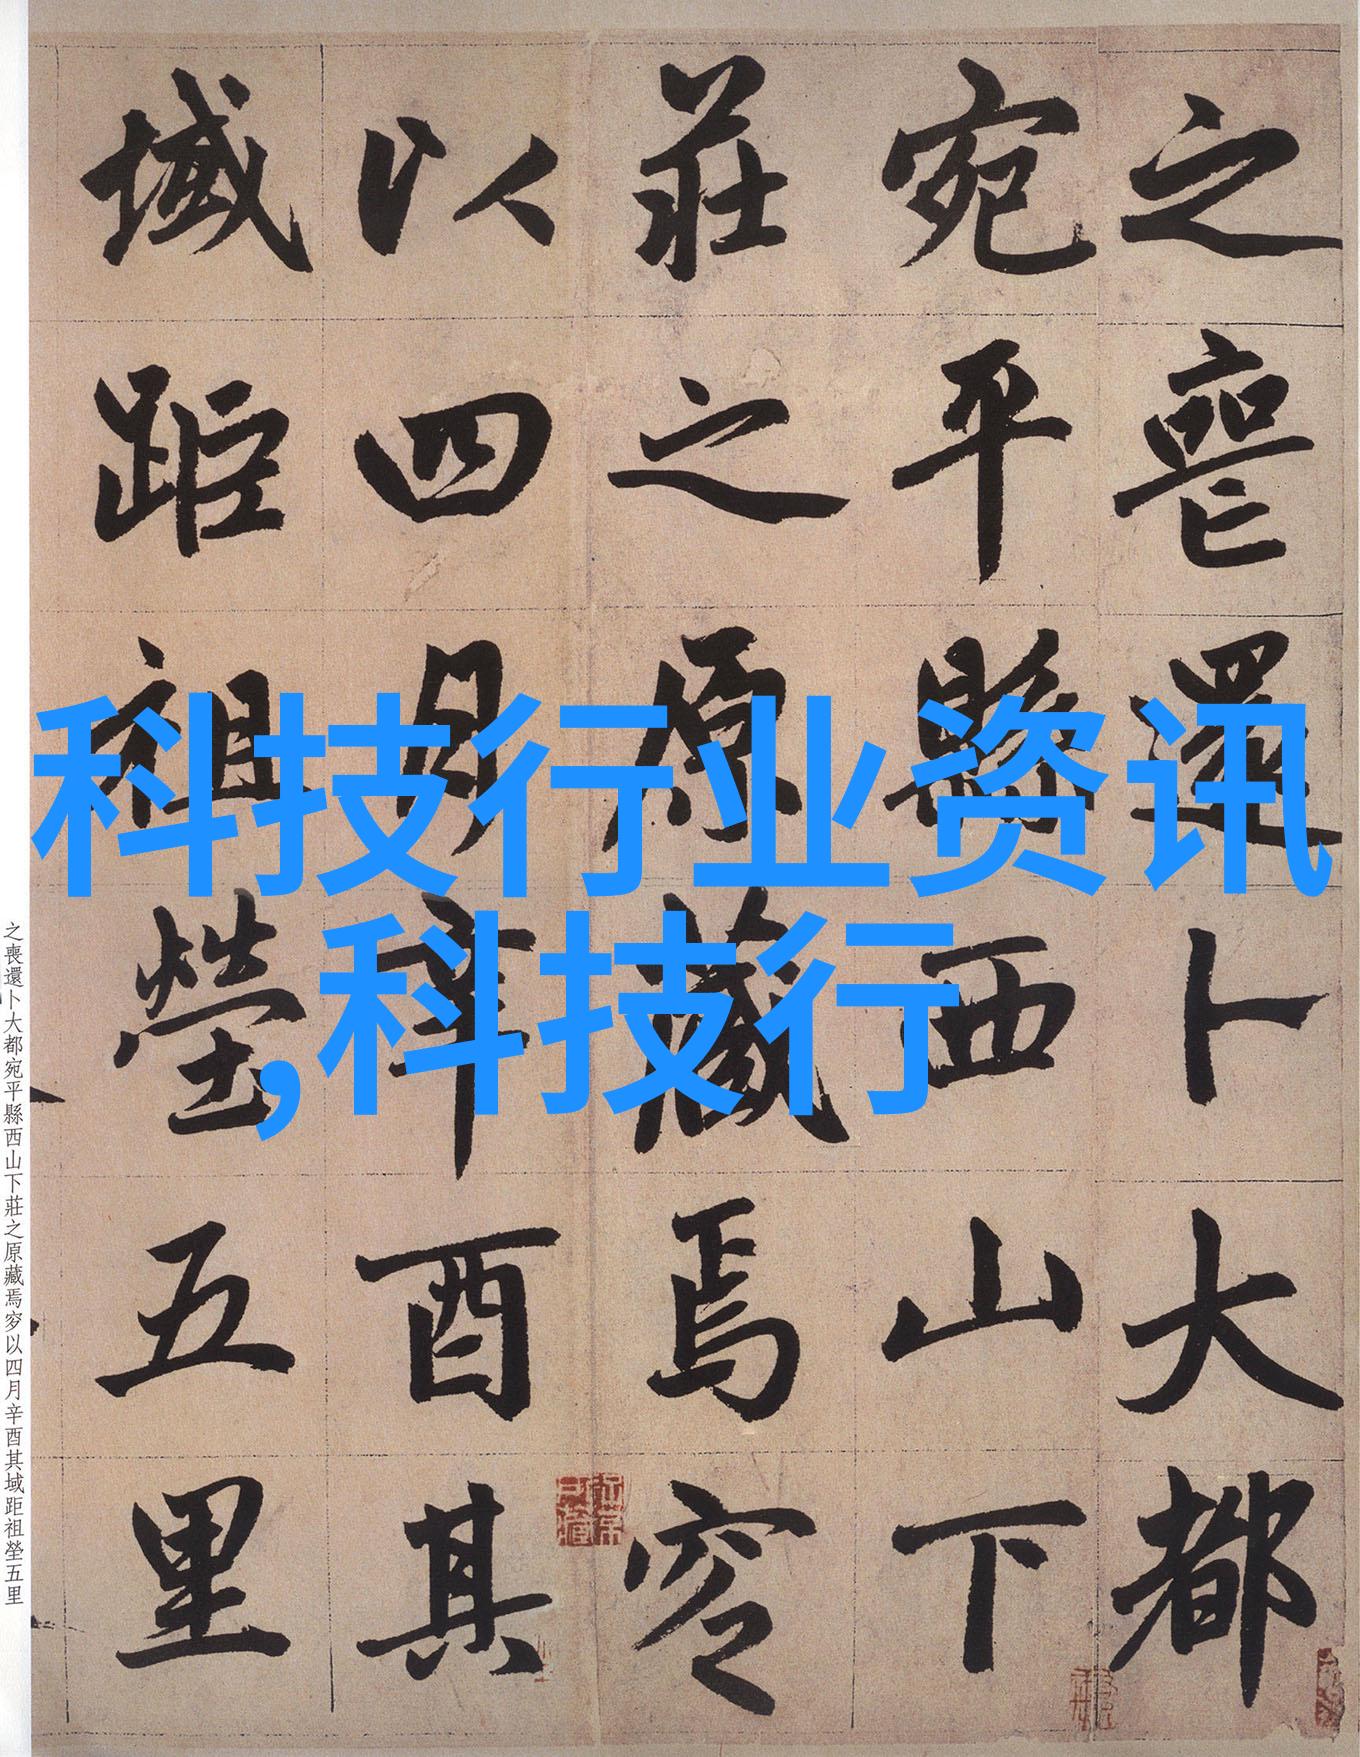 之喪還卜大都
宛平縣西山下
莊之原藏焉窆
以四月辛酉其
域距祖塋五里
科技行业资讯
,科技行
之喪還卜大都宛平縣西山下莊之原藏焉窆以四月辛酉其域距祖塋五里